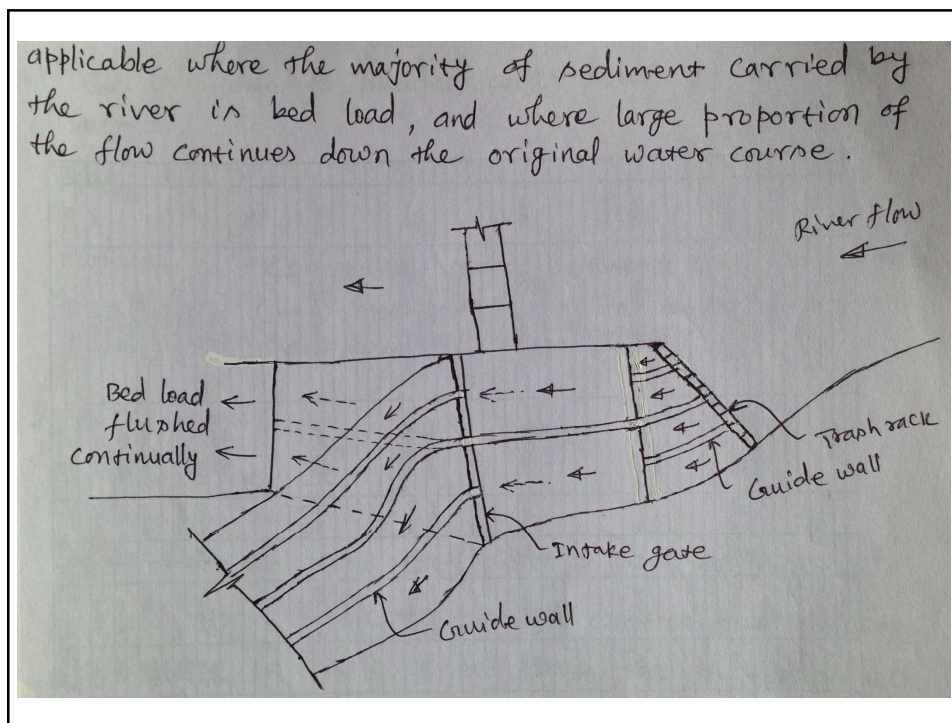 applicable where the majority of sediment carried by
the river is bed load, and where large proportion of
the flow continues down the original water course.
River flow
Bed load
flushed
continually
Trash rack
Guide wall
Intake gate
Guide wall